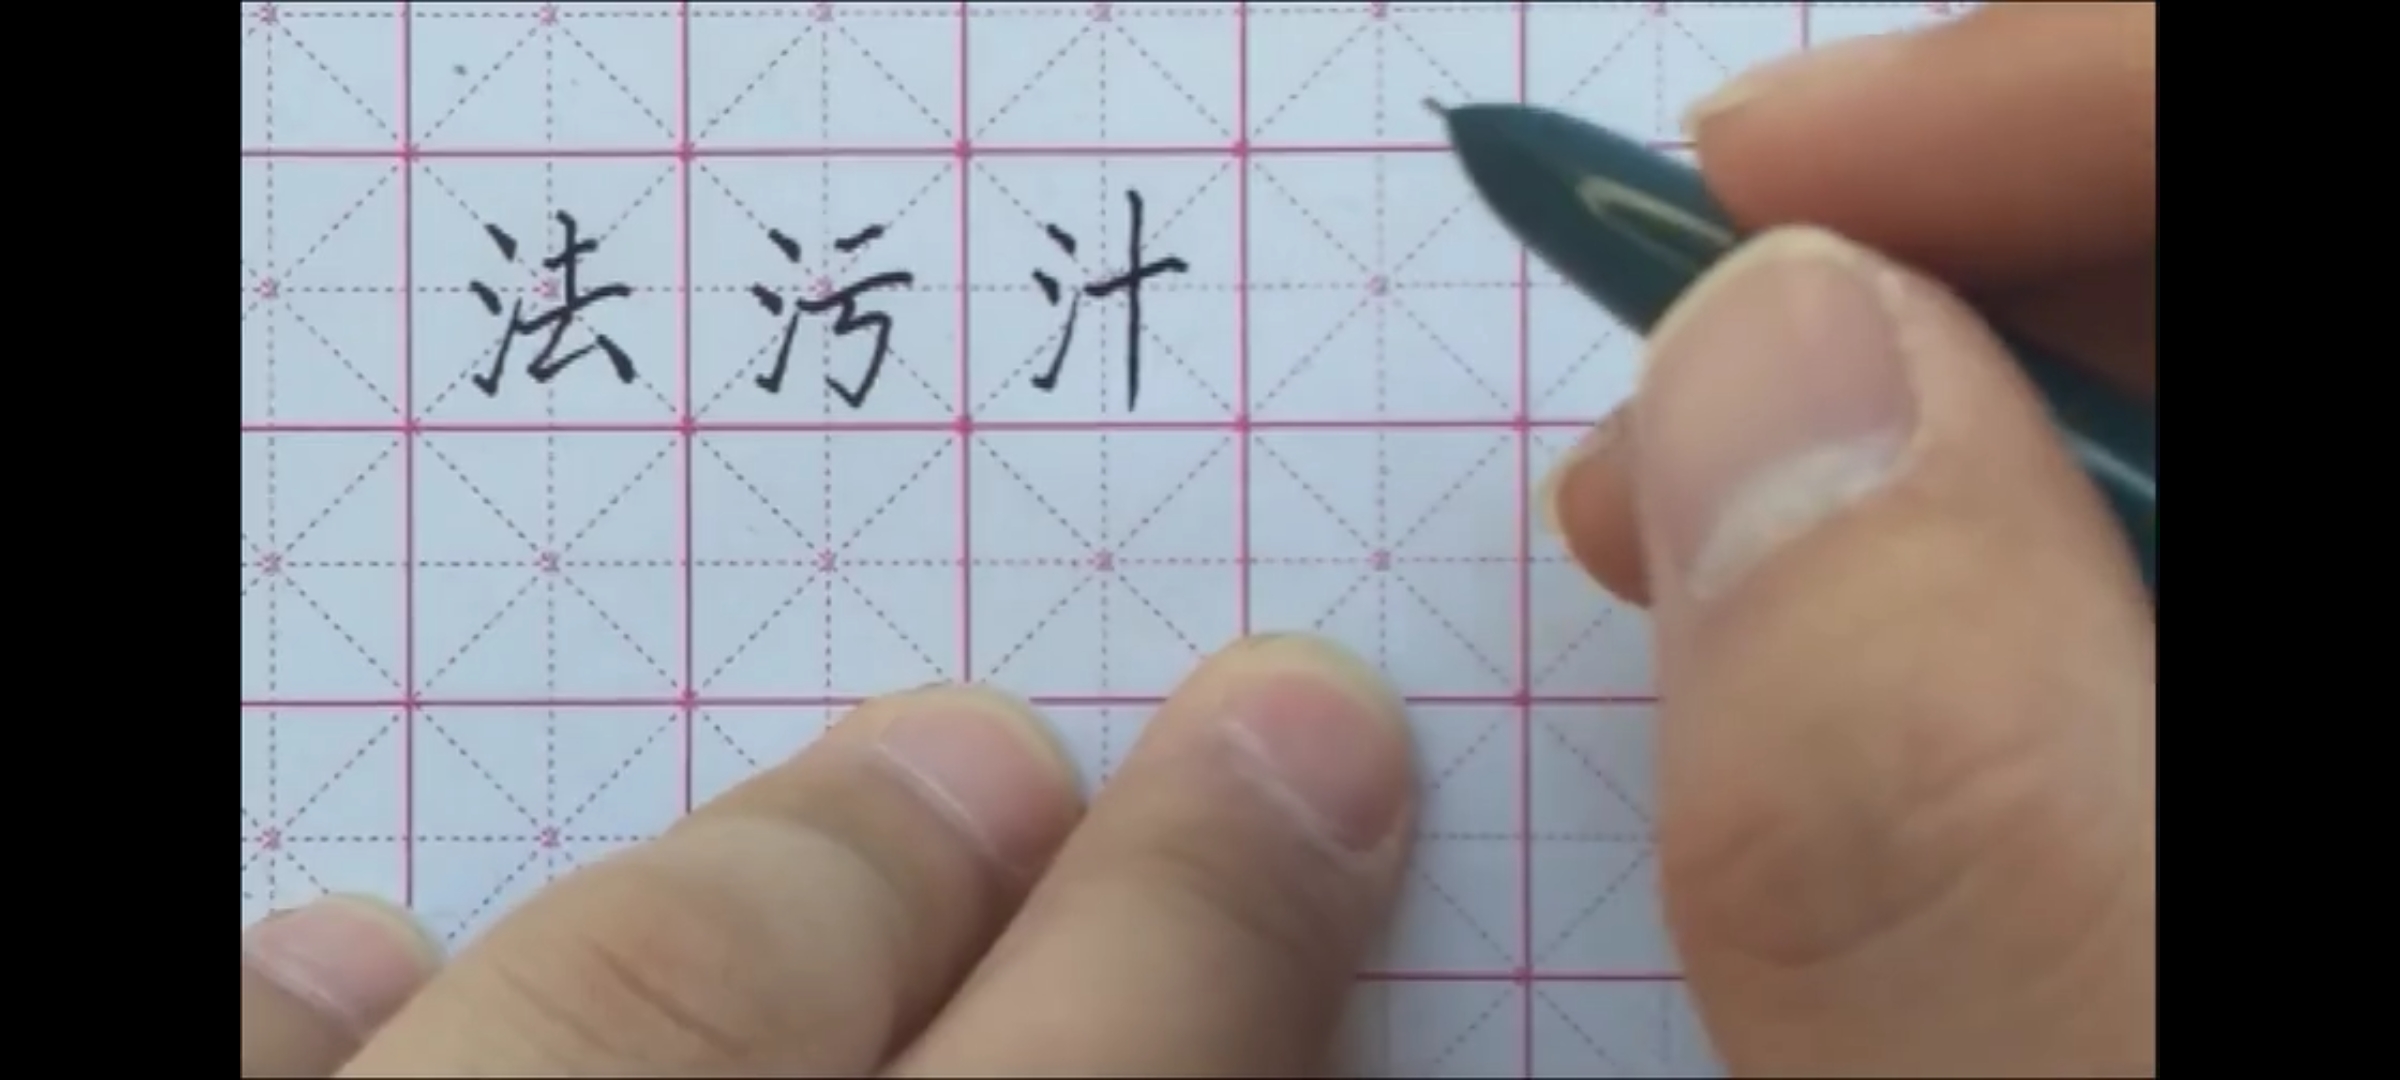 法污汁